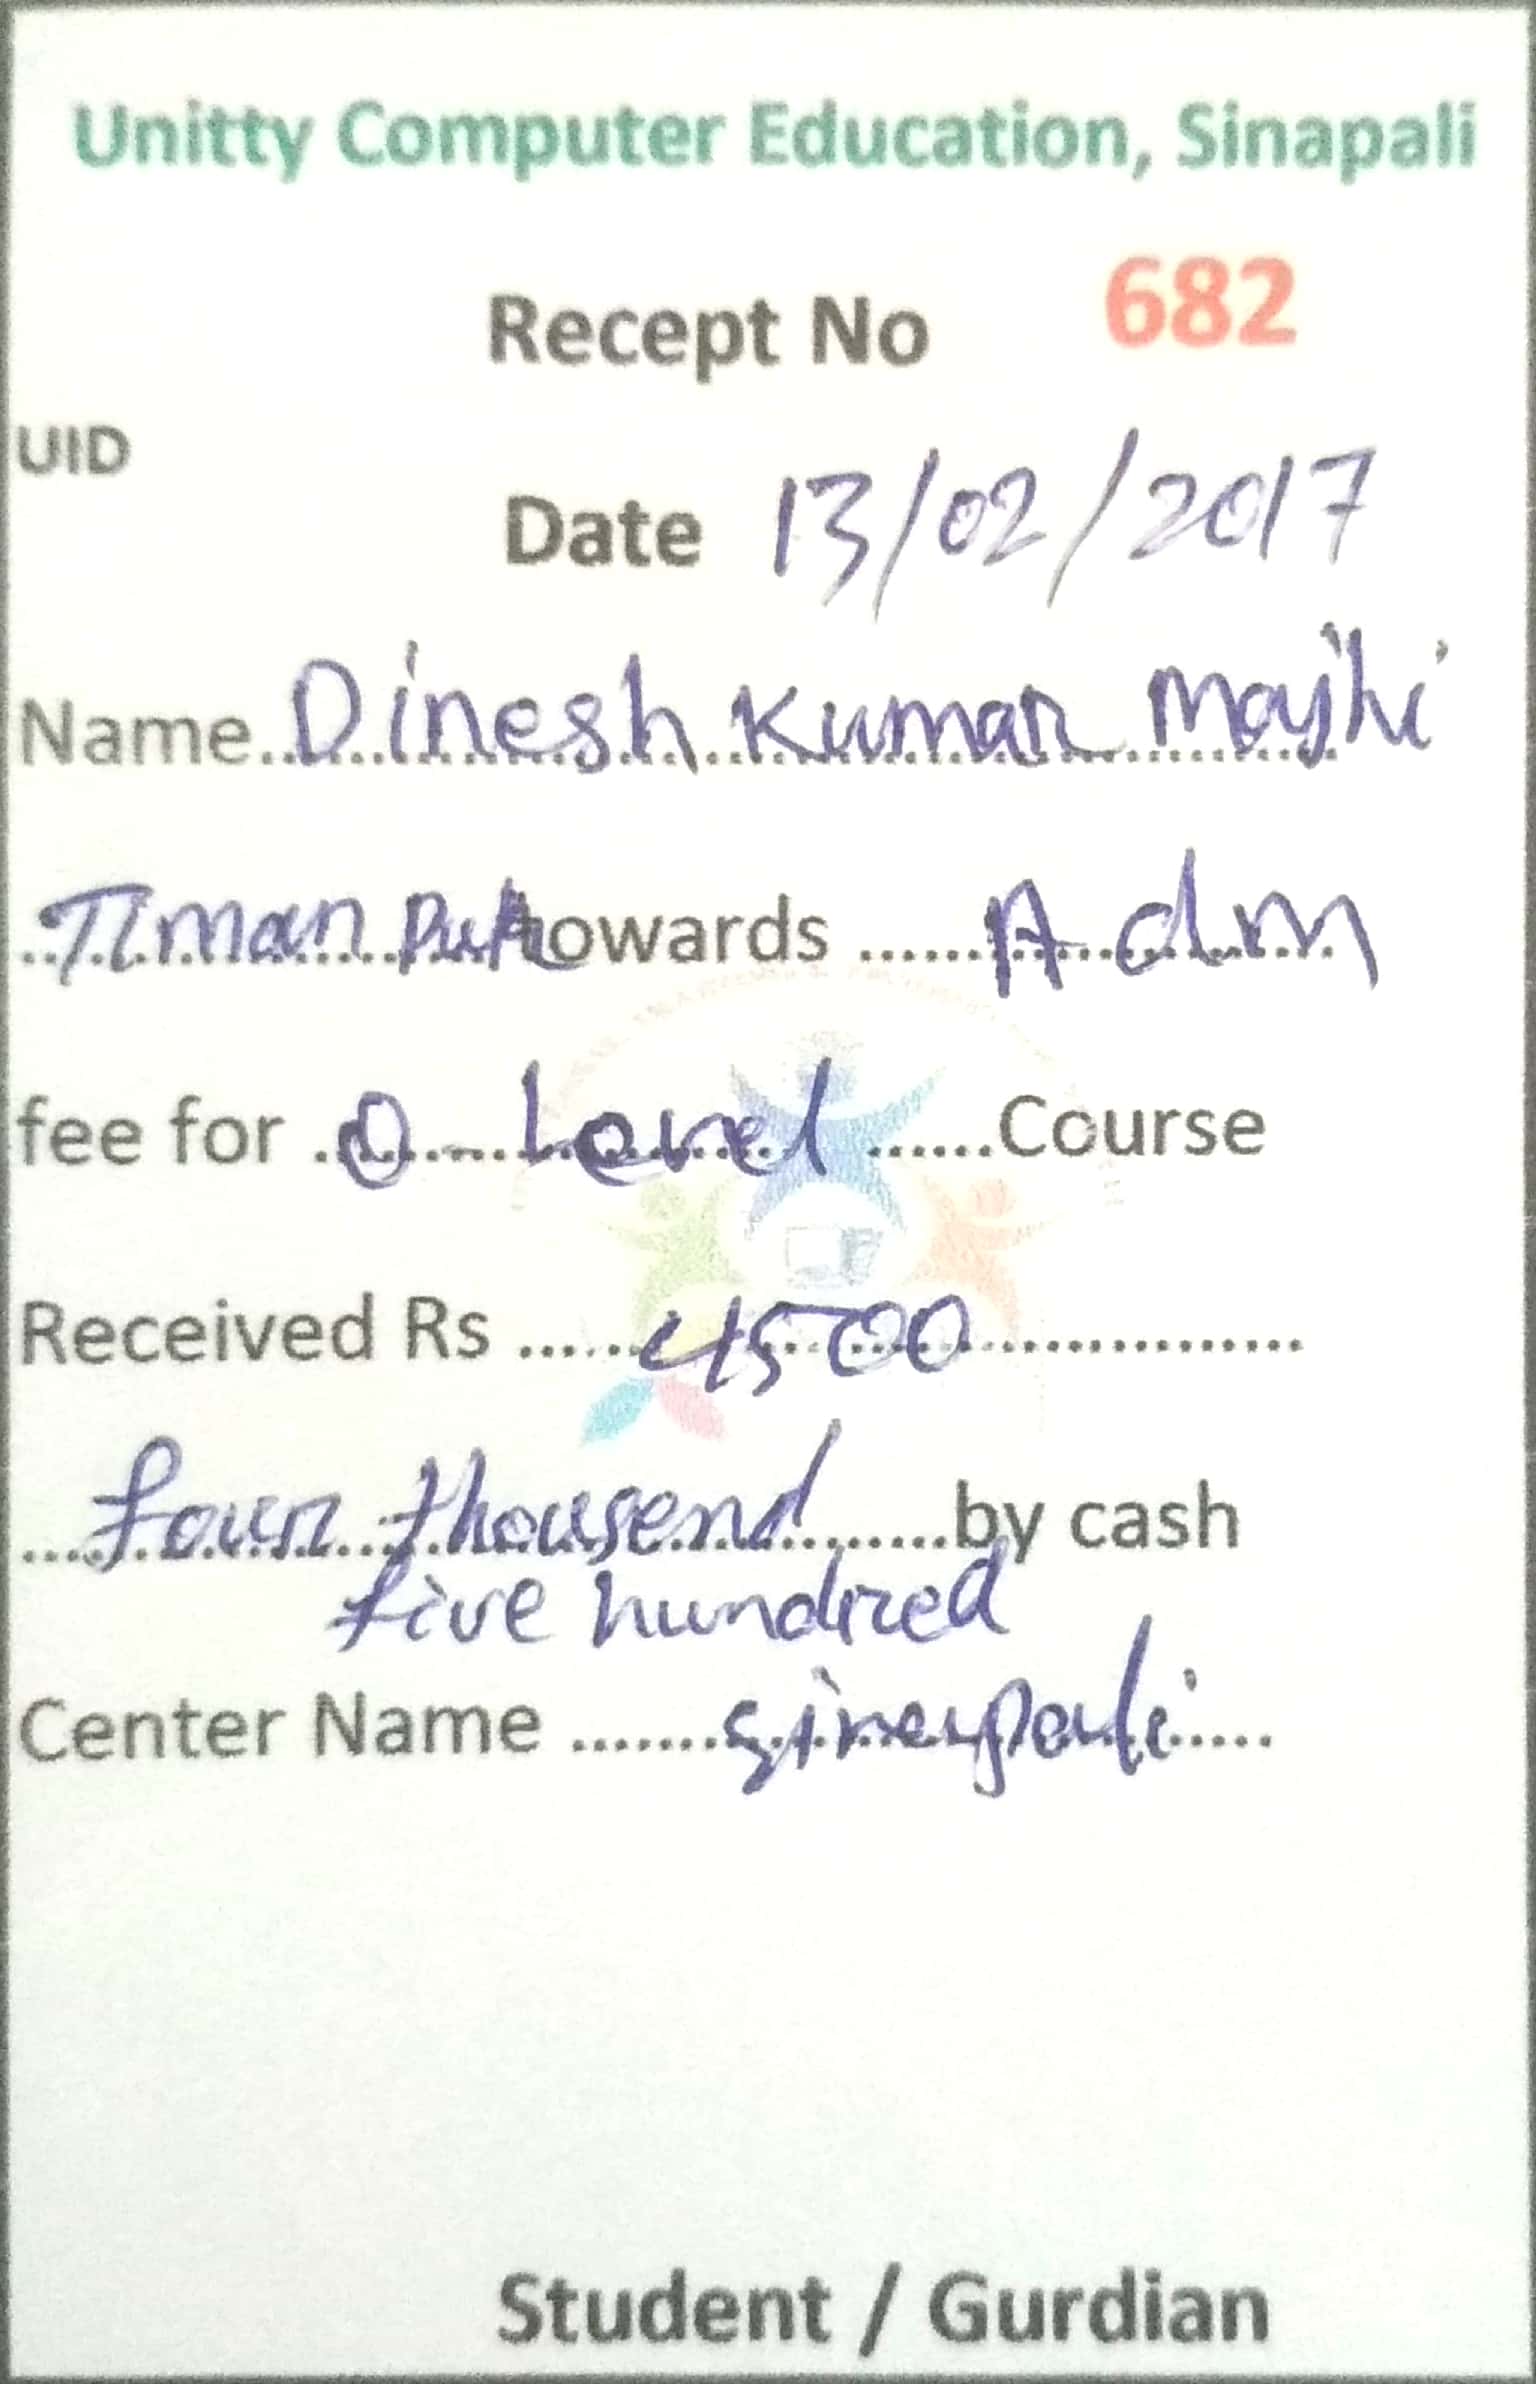 Unitty Computer Education, Sinapali
Recept No 682
UID
Date 13/02/2017
Name Dinesh Kumar Majhi
Timanpur towards ...... Adm
fee for .O Level ......Course
Received Rs ......4500..................
....four thousend.........by cash
five hundred
Center Name .......sinapali.....
Student / Gurdian